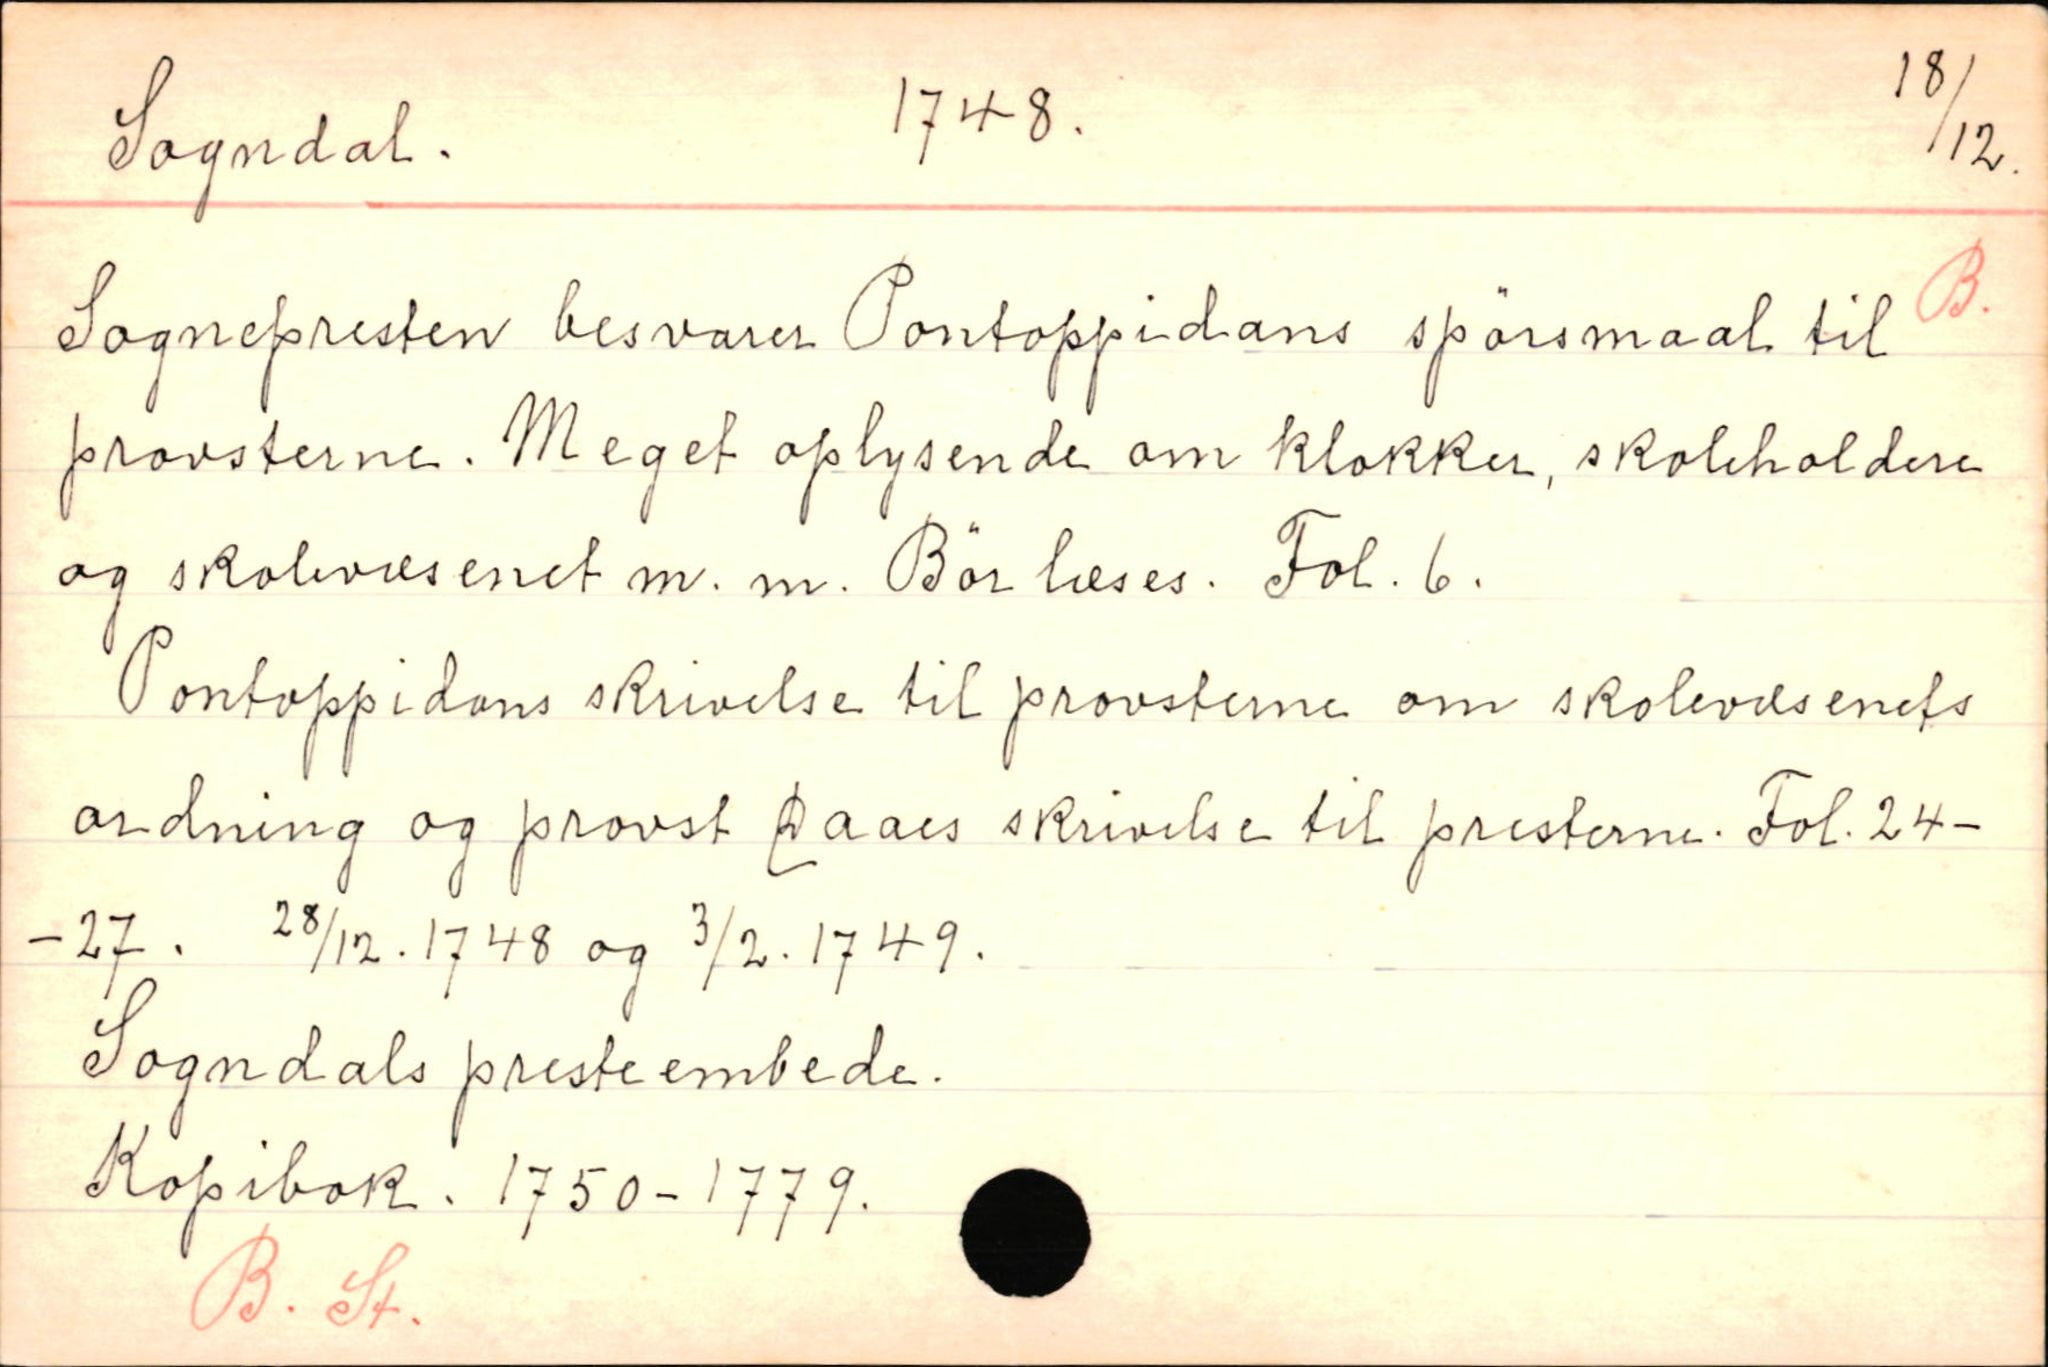 Sogndal. 1748. 18/12.
B.
Sognepresten besvarer Pontoppidans spörsmaal til
provsterne. Meget oplysende om klokker, skoleholdere
og skolevæsenet m. m. Bör læses. Fol. 6.
Pontoppidans skrivelse til provsterne om skolevæsenets
ordning og provst Daaes skrivelse til presterne. Fol. 24-
-27. 28/12. 1748 og 3/2. 1749.
Sogndals presteembede.
Kopibok. 1750-1779.
B. St.